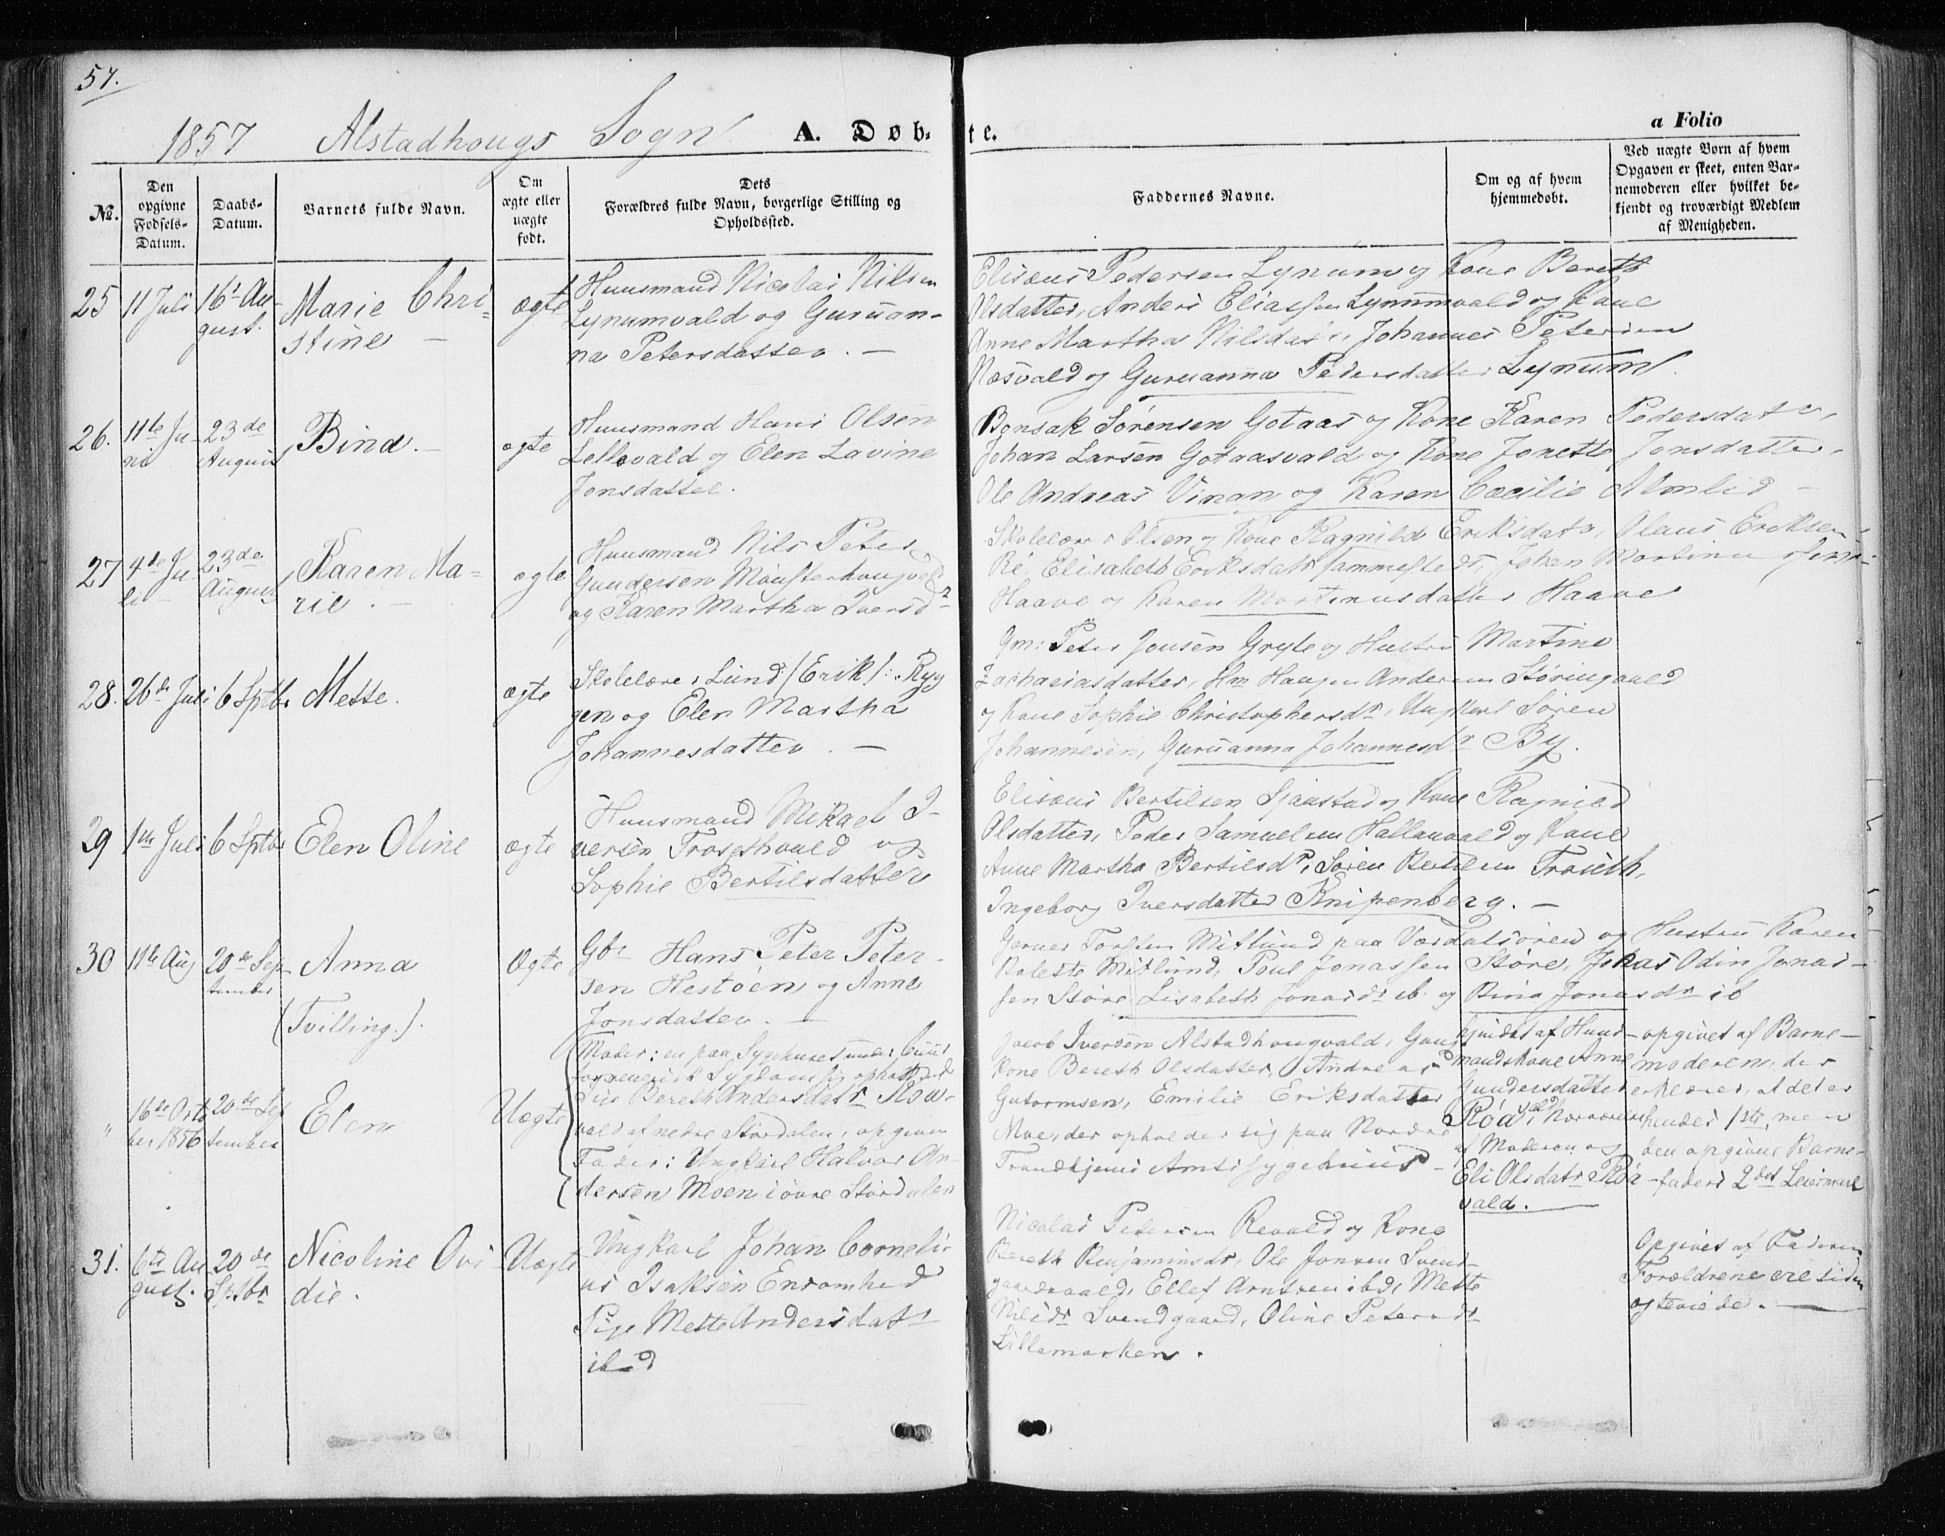 57.
1857 Alstadhougs Sogn A. Døbte. a Folio
No.
Den opgivne Fødsels-Datum.
Daabs-Datum.
Barnets fulde Navn.
Om ægte eller uægte født.
Dets Forældres fulde Navn, borgerlige Stilling og Opholdssted.
Faddernes Navne.
Om og af hvem hjemmedøbt.
Ved uægte Børn af hvem Opgaven er skeet, enten Barnemoderen eller hvilket bekjendt og troværdigt Medlem af Menigheden.
25 11 Juli 16' August. Marie Christine ægte
Huusmand Nicolai Nilsen
Lynumvald og Guruan-
na Petersdatter.
Elisæus Pedersen Lynum og Kone Bereth
Olsdatter, Anders Eliassen Lynumvald og Kone
Anne Martha Nilsdatr, Johannes Petersen
Næsvald og Guruanna Pedersdatter Lynum.
26. 11te Juni 23de August Bina. ægte
Huusmand Hans Olsen
Lellevald og Elen Lavine
Jonsdatter.
Bonsak Sørensen Gotaas og Kone Karen Pedersdatr,
Johan Larsen Gotaasvald og Kone Jonette Jonsdatter,
Ole Andreas Vinan og Karen Cæcilie Almlid
27 4de Juli 23de August Karen Marie. ægte
Huusmand Nils Peter
Gundersen Mønsterhougvald
og Karen Martha Iversdr
Skolelærer Olsen og Kone Ragnild Eriksdatr, Olaus Eriksen
Rē, Elisabeth Eriksdatr sammesteds, Johan Martinus
Haave og Karen Martinusdatter Haave
28. 26de Juli 6 Sptbr Mette. ægte
Skolelærer Lund /:Erik:/ Ryg
gen og Elen Martha
Johannesdatter.
Gm: Peter Jensen Gryte og Hustru Martine
Zachariasdatter, Hm Haagen Andersen Støringvald
og Kone Sophie Christophersdr, Ungkarl Søren
Johannesen, Guruanna Johannesdr By.
29 1ste Juli 6 Sptbr Elen Oline ægte
Huusmand Mikael I-
versen Trosethvald og
Sophie Bertilsdatter
Elisæus Bertilsen Sjaastad og Kone Ragnild
Olsdatter, Peder Samuelsen Hallanvald og Kone
Anne Martha Bertilsdr, Søren Bertilsen Troseth,
Ingeborg Iversdatter Knipenberg.
30 11te Aug 20de September Anna (Tvilling.). Ægte
Gbr Hans Peter Peter-
sen Hestøen og Anne
Jonsdatter.
Torsten Mitlund paa Værdalsøren og Hustru Karen
Mitlund, Poul Jonassen Støre, Johas Odin Jonas-
sen Støre, Lisabeth Jonasdr ib. og Bina Jonasdr ib
" 16de Octo ber 1856 20de September Elen Uægte
Moder: en paa Sygehuset under Cuur
for venerisk Sygdom sig opholdende
Pige Bereth Andersdatr
vald af nedre Størdalen, opgiven
Fader: Ungkarl Halvor An-
dersen Moen i øvre Størdalen
Jacob Iversen Alstadhougvald,
Kone Bereth Olsdatter, Andreas
Guttormsen, Emilie Eriksdatter
Moe, der opholder sig paa Nordre
Trondhjems Amts sygehuus
Hjmdøbt af Huus-
mandskone Anne
Gundersdatter
Røavald, Nærværen
af Moderen og
Eli Olsdatr Røa-
vald.
opgivet af Barne-
moderen, der
erklærer, at det er
hendes 1ste, men
den opgivne Barne-
faders 2det Leiermaal
31. 6te August. 20de Sptbr Nicoline Ovidie. Uægte
Ungkarl Johan Corneli-
us Isaksen Enromhed
Pige Mette Andersdatr
ibd
Nicolai Petersen Revald og Kone
Bereth Benjaminsdr, Ole Jonsen Svend-
gaardvald, Ellef Arntsen ibd, Mette
Nilsdr Svendgaard, Oline Petersdr
Lillemarken.
Opgivet af Faderen
Forældrene ere siden
ægteviede.